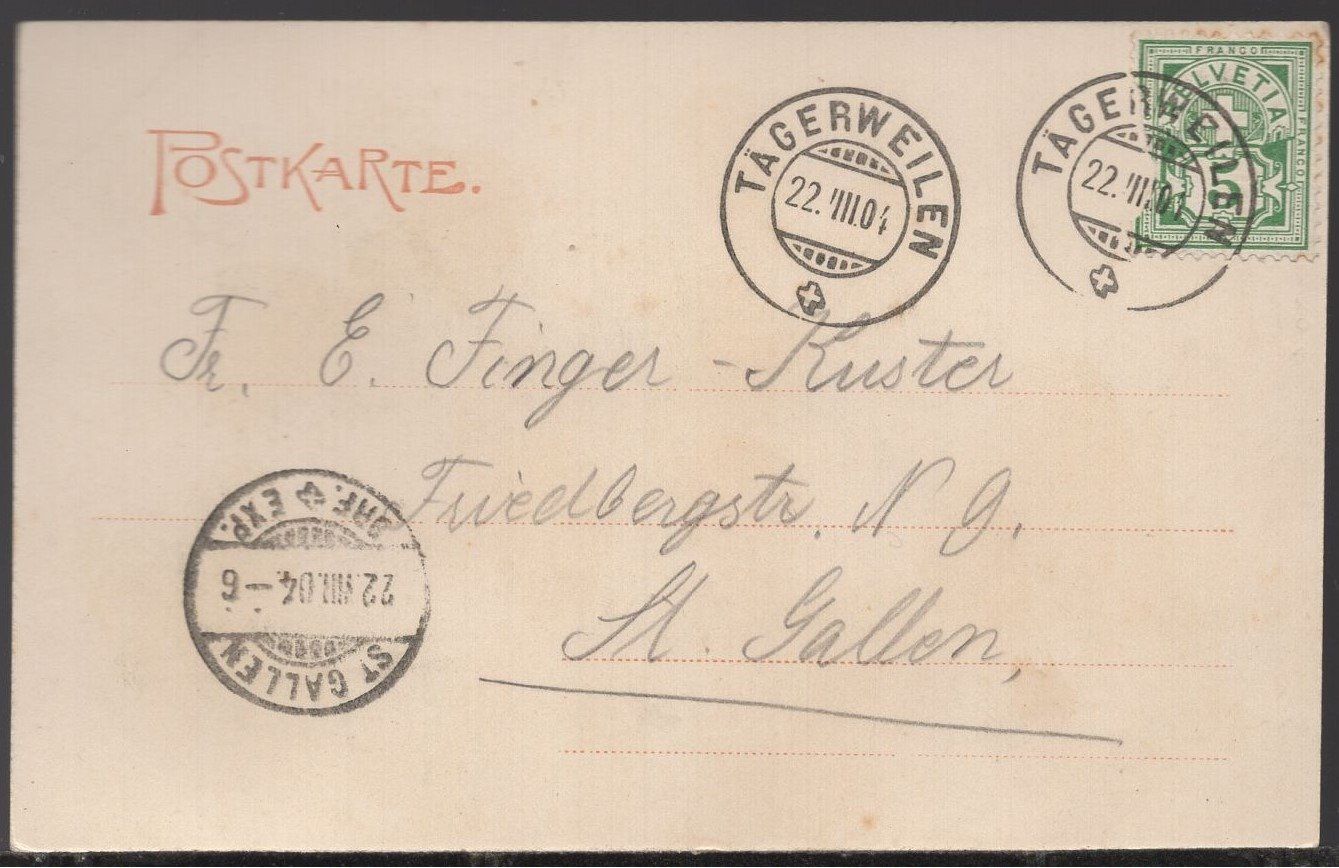 POSTKARTE.
TÄGERWEILEN
22.VIII.04
TÄGERWEILEN
22.VIII.04
FRANCO
HELVETIA
FRANCO
5
Fr. E. Finger-Kuster
Friedbergstr. N 9.
St. Gallen,
ST GALLEN
22.VIII.04.-6
BRF. EXP.